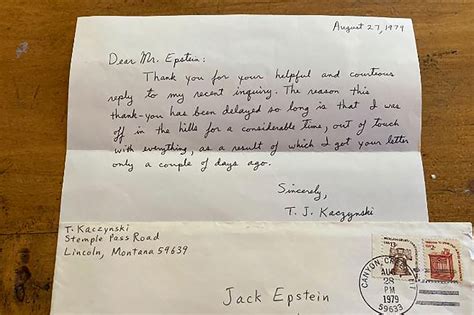 August 27, 1979
Dear Mr. Epstein:
Thank you for your helpful and courteous
reply to my recent inquiry. The reason this
thank-you has been delayed so long is that I was
off in the hills for a considerable time, out of touch
with everything, as a result of which I got your letter
only a couple of days ago.
Sincerely,
T. J. Kaczynski
T. Kaczynski
Stemple Pass Road
Lincoln, Montana 59639
AUG
28
PM
1979
59633
Jack Epstein